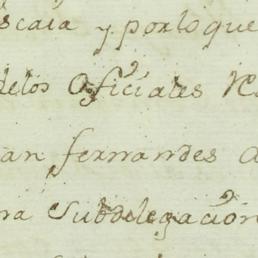 scaia y por lo que
delos Oficiales
an fernandes
Subdelegación